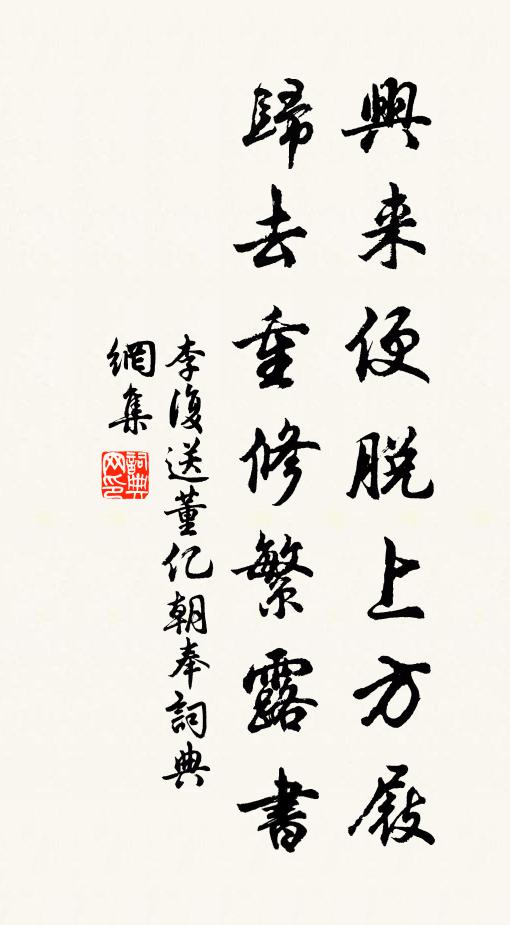 興来便脱上方屐
歸去重修繁露書
李復送董仡朝奉詞典
網集
詞典網印